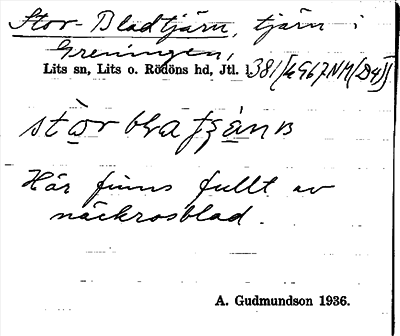 Stor-Bladtjärn, tjärn i
Greningen,
Lits sn, Lits o. Rödöns hd, Jtl. 1381/
Här finns fullt av
näckrosblad.
A. Gudmundson 1936.